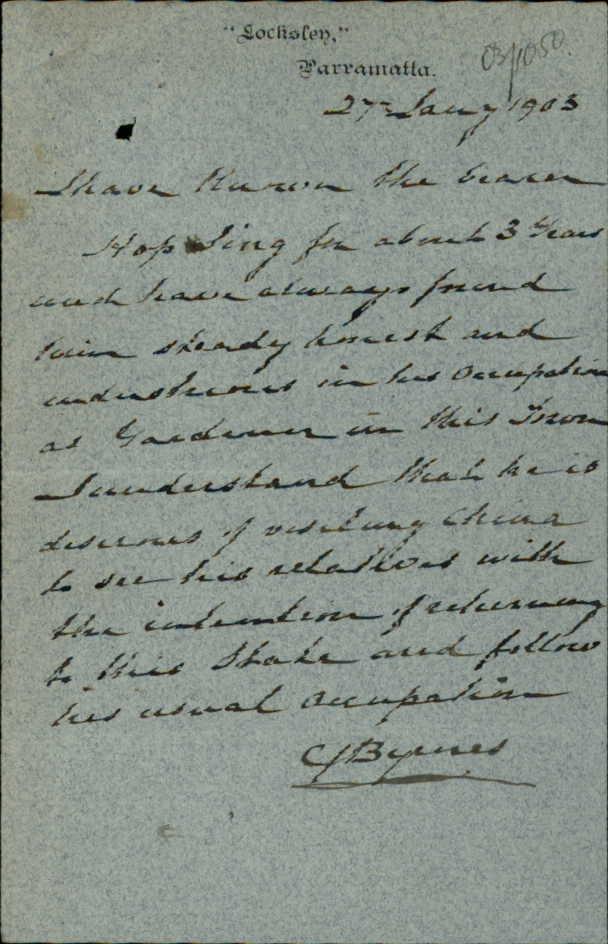 "Locksley,"
Parramatta.
03/1050.
27th Jany 1903
I have Known the bearer
Hop Sing for about 3 Years
and have always found
him steady honest and
industrious in his Occupation
as Gardener in this Town
I understand that he is
desirous of visiting China
to see his relatives with
the intention of returning
to this State and follow
his usual occupation
CJ Byrnes